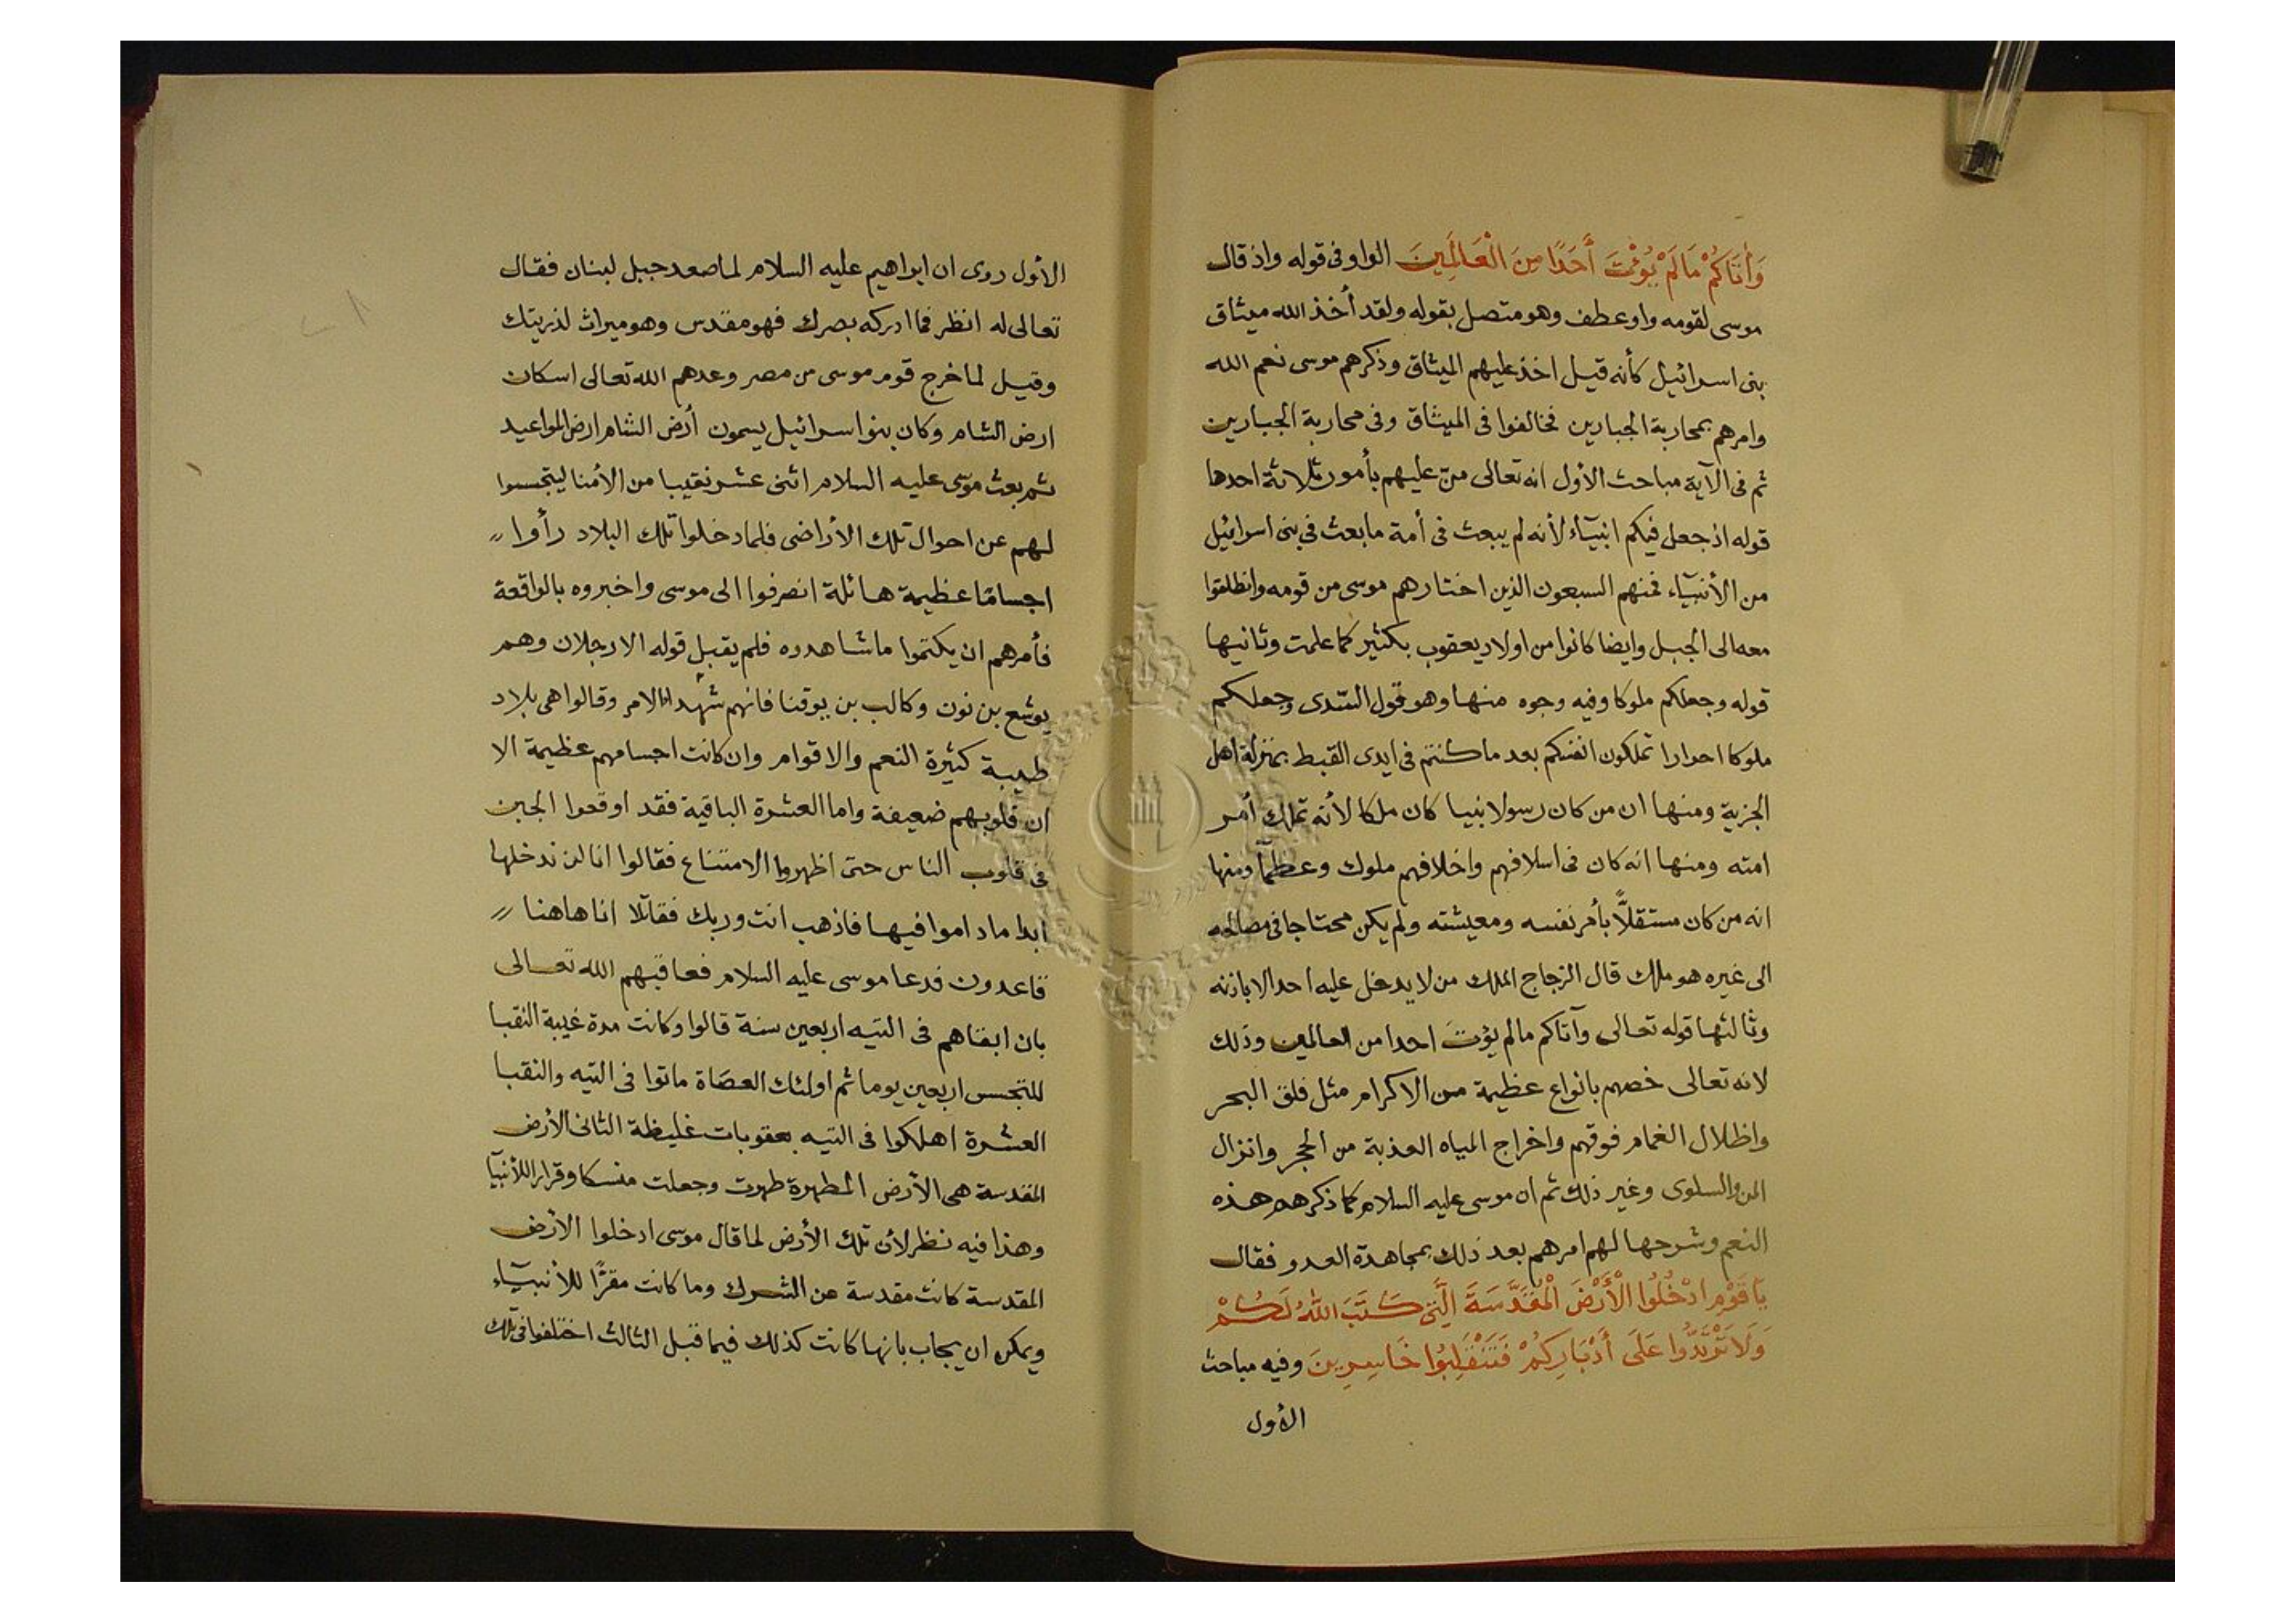 وَآتَاكُمْ مَا لَمْ يُؤْتَ أَحَدًا مِنَ الْعَالَمِينَ الواو فى قوله واذ قال
موسى لقومه واو عطف وهو متصل بقوله ولقد أخذ الله ميثاق
بنى اسرائيل كأنه قيل اخذ عليهم الميثاق وذكرهم موسى نعم الله
وامرهم بمحاربة الجبارين فخالفوا فى الميثاق وفى محاربة الجبارين
ثم فى الآية مباحث الأول انه تعالى منّ عليهم بأمور ثلاثة احدها
قوله اذ جعل فيكم انبيآء لأنه لم يبعث فى أمة ما بعث في بنى اسرائيل
من الأنبيآء فمنهم السبعون الذين اختارهم موسى من قومه وانطلقوا
معه الى الجبل وايضا كانوا من اولاد يعقوب بكثير كما علمت وثانيها
قوله وجعلكم ملوكا وفيه وجوه منها وهو قول السّدى وجعلكم
ملوكا احرارا تملكون انفسكم بعد ما كنتم فى ايدى القبط بمنزلة اهل
الجزية ومنها ان من كان رسولا نبيا كان ملكا لأنه تملك أمر
امته ومنها انه كان فى اسلافهم واخلافهم ملوك وعظمآ ومنها
انه من كان مستقلاًّ بأمر نفسه ومعيشته ولم يكن محتاجا فى مصالحه
الى غيره هو ملك قال الزجاج الملك من لا يدخل عليه احد الا باذنه
وثالثها قوله تعالى وآتاكم مالم يؤتَ احدا من العالمين وذلك
لانه تعالى خصهم بانواع عظيمة من الاكرام مثل فلق البحر
واظلال الغمام فوقهم واخراج المياه العذبة من الحجر وانزال
المن والسلوى وغير ذلك ثم ان موسى عليه السلام كما ذكرهم هذه
النعم وشرحها لهم امرهم بعد ذلك بمجاهدة العدو فقال
يَا قَوْمِ ادْخُلُوا الْأَرْضَ الْمُقَدَّسَةَ الَّتِى كَتَبَ اللهُ لَكُمْ
وَلَا تَرْتَدُّوا عَلَى أَدْبَارِكُمْ فَتَنْقَلِبُوا خَاسِرِينَ وفيه مباحث
الأول
الأول روى ان ابراهيم عليه السلام لما صعد جبل لبنان فقال
تعالى له انظر فما ادركه بصرك فهو مقدس وهو ميراث لذريتك
وقيل لما خرج قوم موسى من مصر وعدهم الله تعالى اسكان
ارض الشام وكان بنوا اسرائيل يسمون أرض الشام ارض المواعيد
ثم بعث موسى عليه السلام اثنى عشر نقيبا من الأمنا ليتجسسوا
لهم عن احوال تلك الأراضى فلما دخلوا تلك البلاد رأوا
اجسامًا عظيمة هائلة انصرفوا الى موسى واخبروه بالواقعة
فأمرهم ان يكتموا ما شاهدوه فلم يقبل قوله الا رجلان وهم
يوشع بن نون وكالب بن يوقنا فانهم شهدا الامر وقالوا هى بلاد
طيبة كثيرة النعم والاقوام وان كانت اجسامهم عظيمة الا
ان قلوبهم ضعيفة واما العشرة الباقية فقد اوقعوا الجبن
فى قلوب الناس حتى اظهروا الامتناع فقالوا انا لن ندخلها
ابدا ما داموا فيها فاذهب انت وربك فقاتلا انا هاهنا
قاعدون فدعا موسى عليه السلام فعاقبهم الله تعالى
بان ابقاهم فى التيه اربعين سنة قالوا وكانت مدة غيبة النقبا
للتجسس اربعين يوما ثم اولئك العصَاة ماتوا فى التيه والنقبا
العشرة اهلكوا فى التيه بعقوبات غليظة الثانى الأرض
المقدسة هى الأرض المطهرة طهرت وجعلت منسكا وقرارا للأنبيآ
وهذا فيه نظر لأن تلك الأرض لما قال موسى ادخلوا الارض
المقدسة كانت مقدسة عن الشرك وما كانت مقرًّا للأنبيآء
ويمكن ان يجاب بانها كانت كذلك فيما قبل الثالث اختلفوا فى تلك